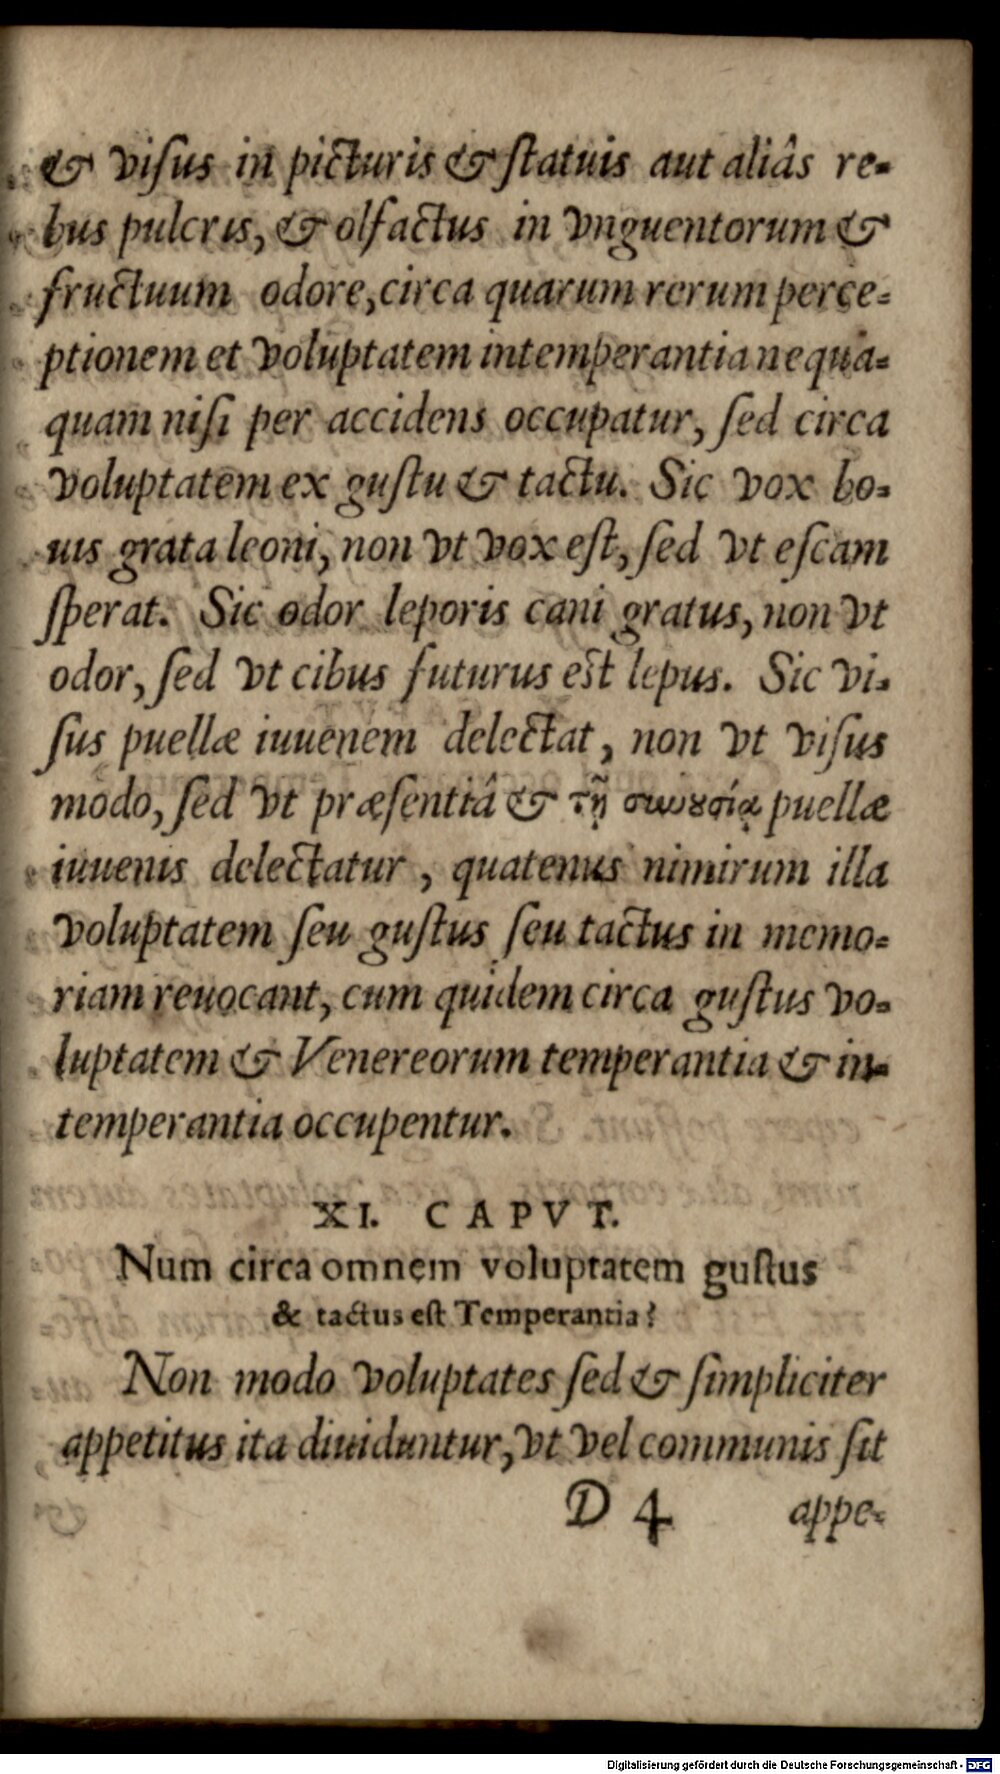 & viſus in picturis & ſtatuis aut aliâs re-
bus pulcris, & olfactus in vnguentorum &
fructuum odore, circa quarum rerum perce-
ptionem et voluptatem intemperantia nequa-
quam niſi per accidens occupatur, ſed circa
voluptatem ex guſtu & tactu. Sic vox bo-
uis grata leoni, non vt vox eſt, ſed vt eſcam
ſperat. Sic odor leporis cani gratus, non vt
odor, ſed vt cibus futurus eſt lepus. Sic vi-
ſus puellæ iuuenem delectat, non vt viſus
modo, ſed vt præſentiâ & τῇ συνουσίᾳ puellæ
iuuenis delectatur, quatenus nimirum illa
voluptatem ſeu guſtus ſeu tactus in memo-
riam reuocant, cum quidem circa guſtus vo-
luptatem & Venereorum temperantia & in-
temperantia occupentur.
XI. CAPVT.
Num circa omnem voluptatem guſtus
& tactus eſt Temperantia?
Non modo voluptates ſed & ſimpliciter
appetitus ita diuiduntur, vt vel communis ſit
D 4 appe-
Digitalisierung gefördert durch die Deutsche Forschungsgemeinschaft - DFG